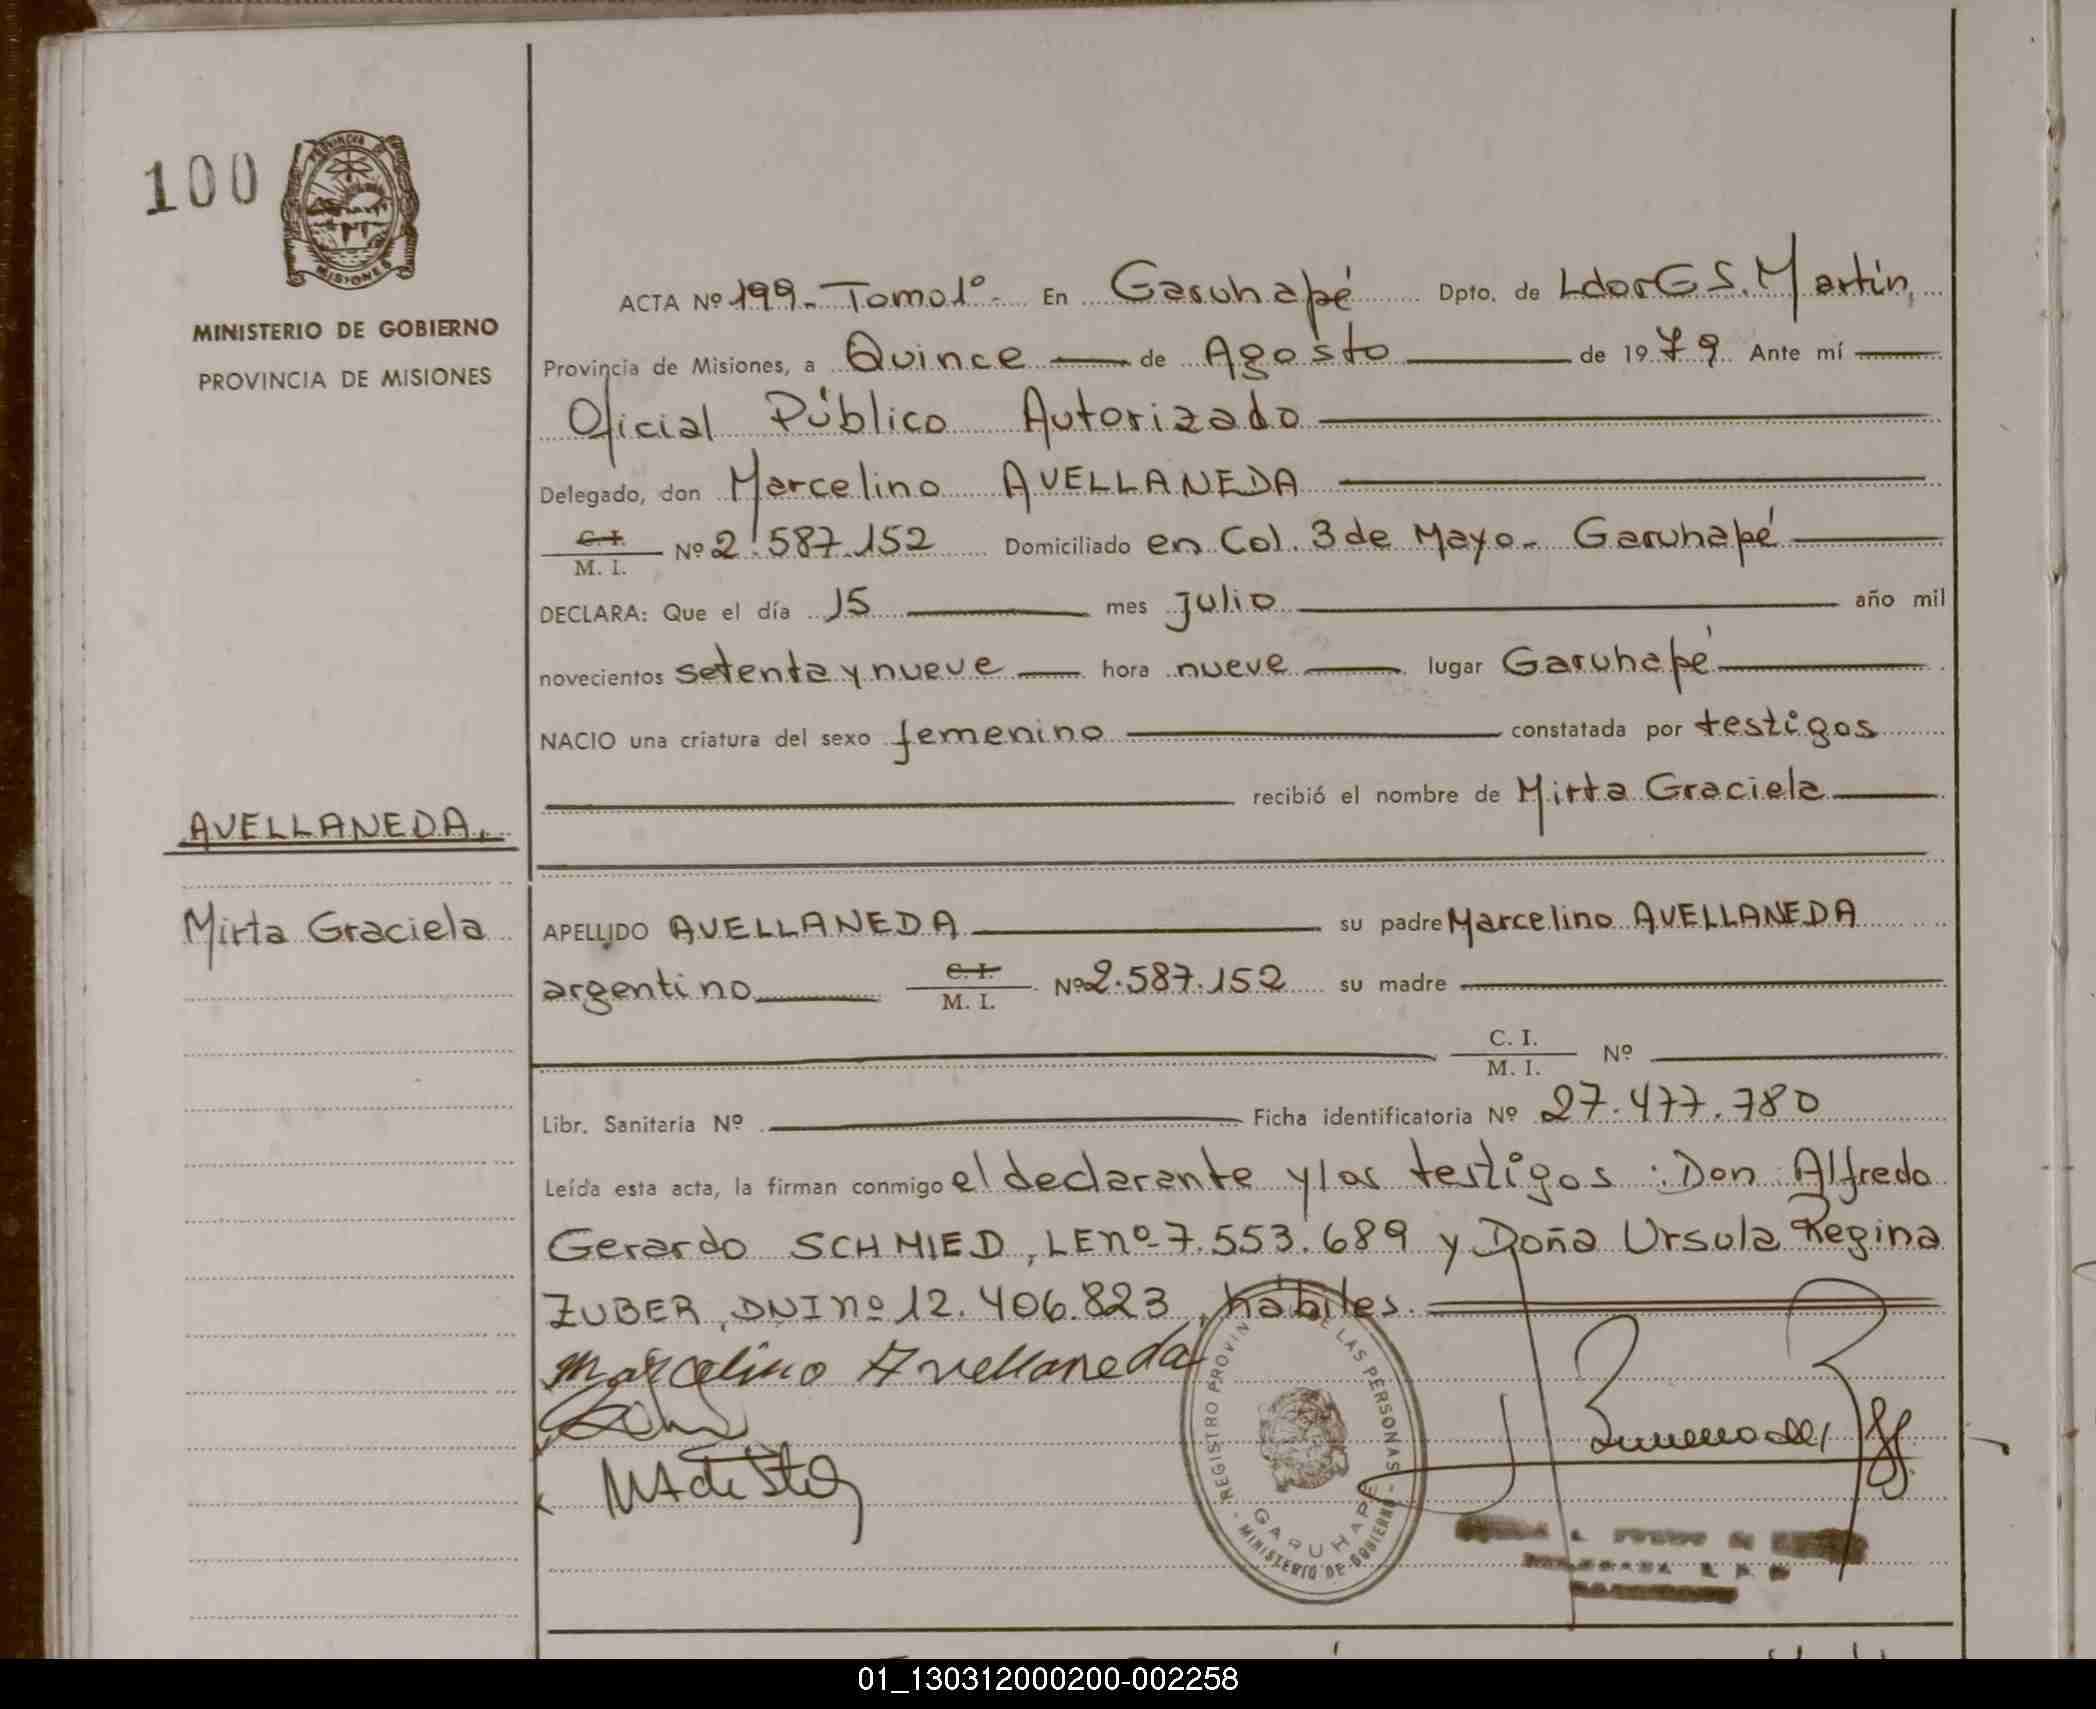 100
PROVINCIA DE
MISIONES
MINISTERIO DE GOBIERNO
PROVINCIA DE MISIONES
ACTA Nº 199-Tomo 1º- En Garuhapé Dpto. de Ldor G S. Martín,
Provincia de Misiones, a Quince de Agosto de 1979 Ante mí
Oficial Público Autorizado
Delegado, don Marcelino AVELLANEDA
C. I.
M. I. Nº 2.587.152 Domiciliado en Col. 3 de Mayo- Garuhapé
DECLARA: Que el día 15 mes julio año mil
novecientos setenta y nueve hora nueve lugar Garuhapé
NACIO una criatura del sexo femenino constatada por testigos
recibió el nombre de Mirta Graciela
AVELLANEDA,
Mirta Graciela
APELLIDO AVELLANEDA su padre Marcelino AVELLANEDA
argentino C. I.
M. I. Nº 2.587.152 su madre
C. I.
M. I. Nº
Libr. Sanitaria Nº Ficha identificatoria Nº 27.477.780
Leída esta acta, la firman conmigo el declarante y los testigos: Don Alfredo
Gerardo SCHMIED, LE nº 7.553.689 y Doña Ursula Regina
ZUBER, DNI nº 12.406.823, hábiles.
Marcelino Avellaneda
REGISTRO PROVIN DE LAS PERSONAS
GARUHAPE
MINISTERIO DE GOBIERNO
01_130312000200-002258